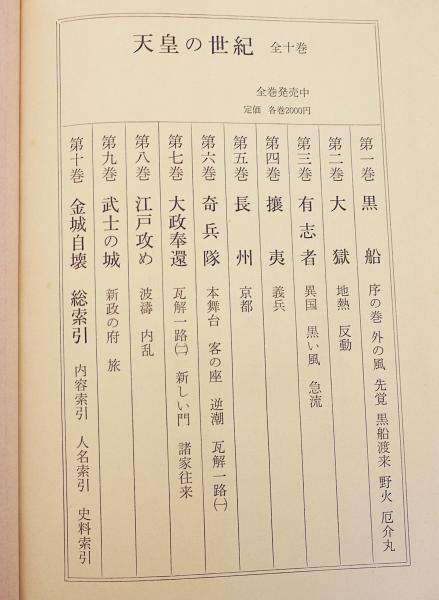 天皇の世紀 全十巻
全巻発売中
定価 各巻2000円
第一巻 黒船 序の巻 外の風 先覚 黒船渡来 野火 厄介丸
第二巻 大獄 地熱 反動
第三巻 有志者 異国 黒い風 急流
第四巻 攘夷 義兵
第五巻 長州 京都
第六巻 奇兵隊 本舞台 客の座 逆潮 瓦解一路㈠
第七巻 大政奉還 瓦解一路㈡ 新しい門 諸家往来
第八巻 江戸攻め 波濤 内乱
第九巻 武士の城 新政の府 旅
第十巻 金城自壊 総索引 内容索引 人名索引 史料索引